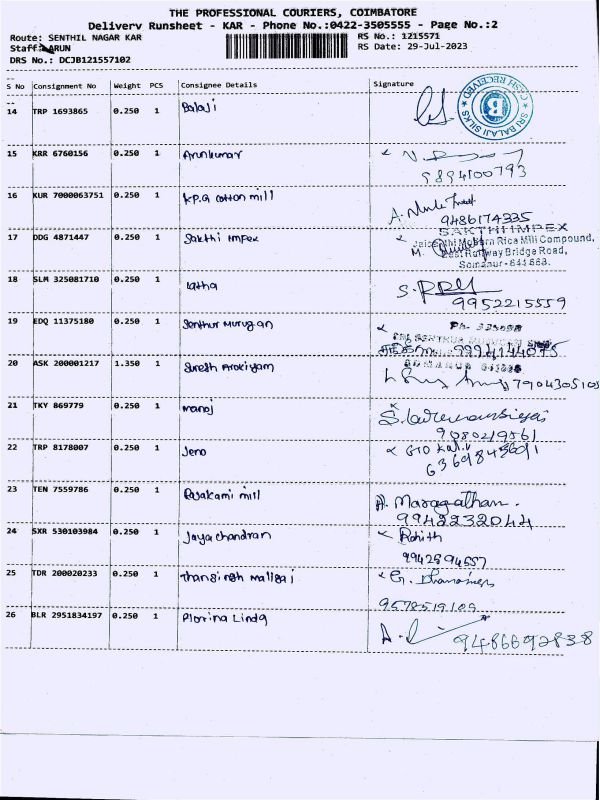 THE PROFESSIONAL COURIERS, COIMBATORE
Delivery Runsheet - KAR - Phone No.:0422-3505555 - Page No.:2
Route: SENTHIL NAGAR KAR RS No.: 1215571
Staff: ARUN RS Date: 29-Jul-2023
DRS No.: DCJB121557102
S No Consignment No Weight PCS Consignee Details Signature
14 TRP 1693865 0.250 1 Balaji
CASH RECEIVED
SRI BALAJI SILKS
15 KRR 6760156 0.250 1 Arunkumar
9894100793
16 KUR 7000063751 0.250 1 K.P.G cotton mill
9486174335
17 DDG 4871447 0.250 1 Sakthi Impex
SAKTHI IMPEX
Modern Rice Mill Compound,
East Railway Bridge Road,
Somanur - 641 668.
18 SLM 325081710 0.250 1 Latha
9952215559
19 EDQ 11375180 0.250 1 Senthur Murugan
20 ASK 200001217 1.350 1 Suresh Arokiyam
7904305105
21 TKY 869779 0.250 1 Manoj
9080219561
22 TRP 8178007 0.250 1 Jeno
6369845691
23 TEN 7559786 0.250 1 Rajakami mill
A. Maragatham.
9942232044
24 SXR 530103984 0.250 1 Jaya chandran
Rohith
9942894557
25 TDR 200020233 0.250 1
9578519109
26 BLR 2951834197 0.250 1
9486692838